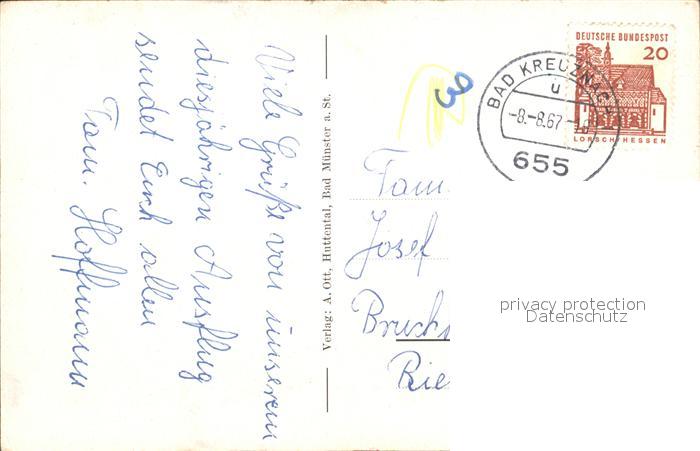 Viele Grüße von unserem
diesjährigen Ausflug
sendet Euch allen
Fam. Hoffmann
Verlag: A. Ott, Huttental, Bad Münster a. St.
3
DEUTSCHE BUNDESPOST
20
LORSCH/HESSEN
BAD KREUZNACH
ü
-8.-8.67-
655
Fam.
Josef
Bruchs
Rie
privacy protection
Datenschutz